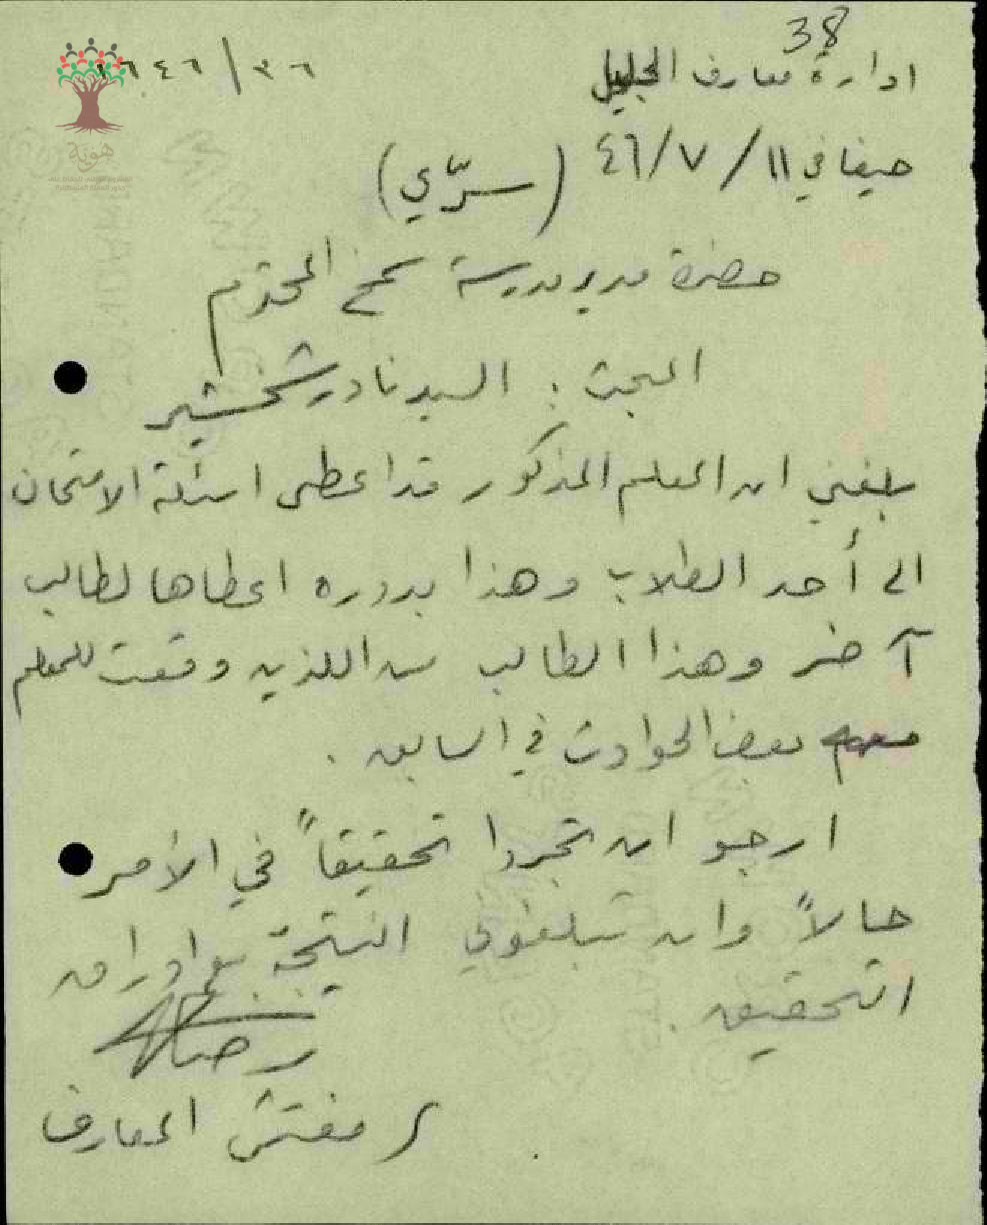 38
ادارة معارف الجليل
٣٦/١٦٤٦
حيفا في ١١/٧/٤٦ (سرّي)
حضرة مدير مدرسة سمخ المحترم
البحث: السيد نادر شخشير
بلغني ان المعلم المذكور قد اعطى اسئلة الامتحان
الى أحد الطلاب وهذا بدوره اعطاها لطالب
آخر وهذا الطالب من اللذين وقعت للمعلم
معهم بعض الحوادث في السابق.
ارجو ان تجروا تحقيقاً في الأمر
حالاً وان تبلغوني النتيجة مع اوراق
التحقيق.
مفتش المعارف
هوية